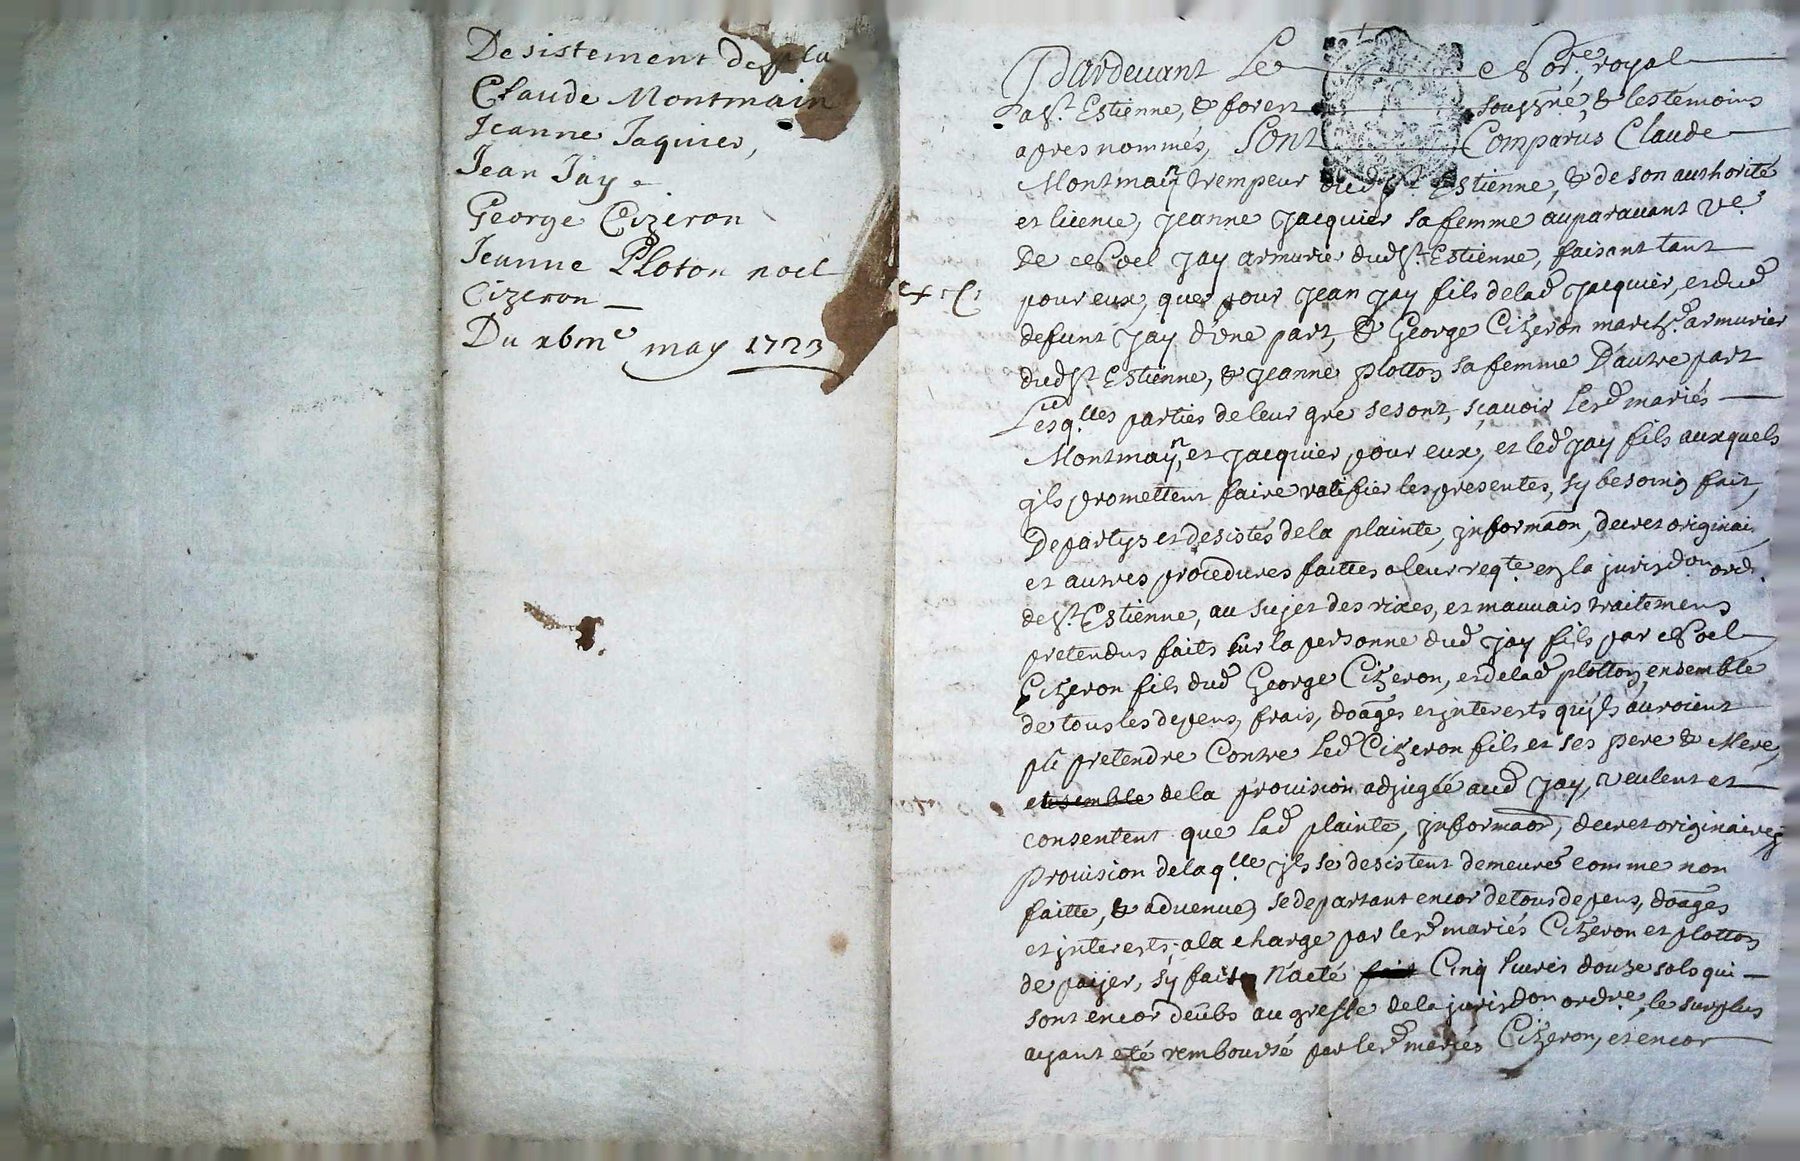 Desistement de pla
Claude Montmain
Jeanne Jaquier,
Jean Jay
George Cizeron
Jeanne Ploton noel
Cizeron
Du xbme may 1723
Pardevant Le Nore. royal
a St. Estienne, & forest soussné, & les temoins
apres nommés, Sont Comparus Claude
Montmayn trempeur dud St. Estienne, & de son authorité
et licence, Jeanne Jacquier sa femme auparavant ve.
De Noel Jay armurier dud St. Estienne, faisant tant
pour eux, que pour Jean Jay fils de lad Jacquier, et dud
defunt Jay d'une part, & George Cizeron march. armurier
dud St. Estienne, & Jeanne plotton sa femme D'autre part
Lesqlles parties de leur gré se sont, sçavoir lesd mariés
Montmayn, et Jacquier pour eux, et led Jay fils auxquels
jls promettent faire ratifier les presentes, sy besoing fait,
Departys et desistés de la plainte, jnformaon, decret originai,
et autres procedures faittes a leur reqte en la jurisdon ord.
de St. Estienne, au sujet des rixes, et mauvais traitemens
pretendus faits sur la personne dud Jay fils par Noel
Cizeron fils dud George Cizeron, et de lad plotton, ensemble
de tous les depens, frais, doages et jnterests qu'jls auroient
pû pretendre Contre led Cizeron fils et ses pere & Mere,
ensemble de la provision adjugée aud Jay, veulent et
consentent que lad plainte, jnformaon, decret originaire, &
provision de laqlle jls se desistent demeure comme non
faitte, & advenue, se departant encor de tous depens, doages
et jnterests, a la charge par lesd mariés Cizeron et plotton
de paijer, sy fait n'a eté fait Cinq livres douze sols qui
sont encor deubs au greffe de la jurisdon ordre, le surplus
ayant eté remboursé par lesd mariés Cizeron, et encor